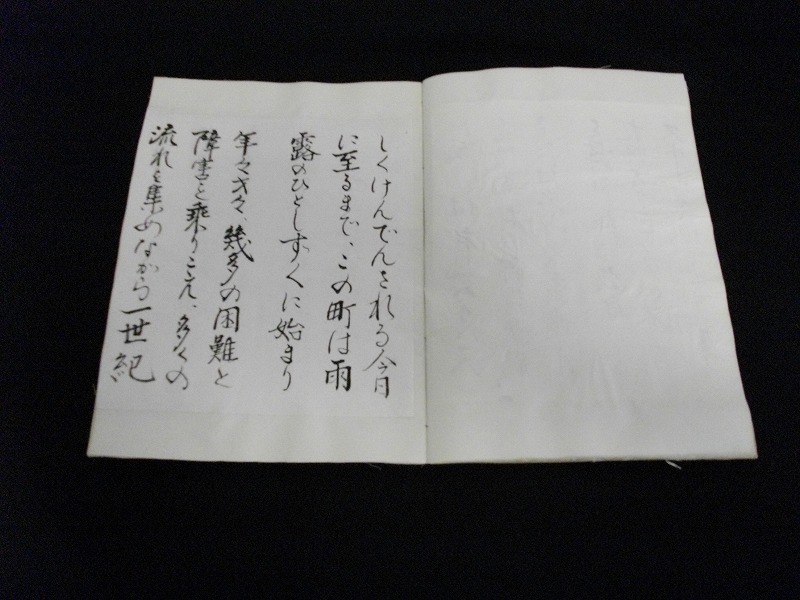 しくけんでんされる今日
に至るまで、この町は雨
露のひとしずくに始まり
年々才々、幾多の困難と
障害を乗りこえ、多くの
流れを集めながら一世紀